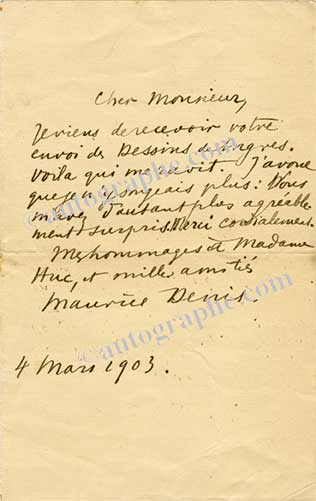 Cher Monsieur,
Je viens de recevoir votre
envoi des Dessins d'Ingres.
Voila qui me ravit. J'avoue
que je n'y songeais plus : Vous
m'avez d'autant plus agréable-
ment surpris. Merci cordialement.
Mes hommages à Madame
Huc, et mille amitiés
Maurice Denis
4 Mars 1903.
©autographe.com
©autographe.com
©autographe.com